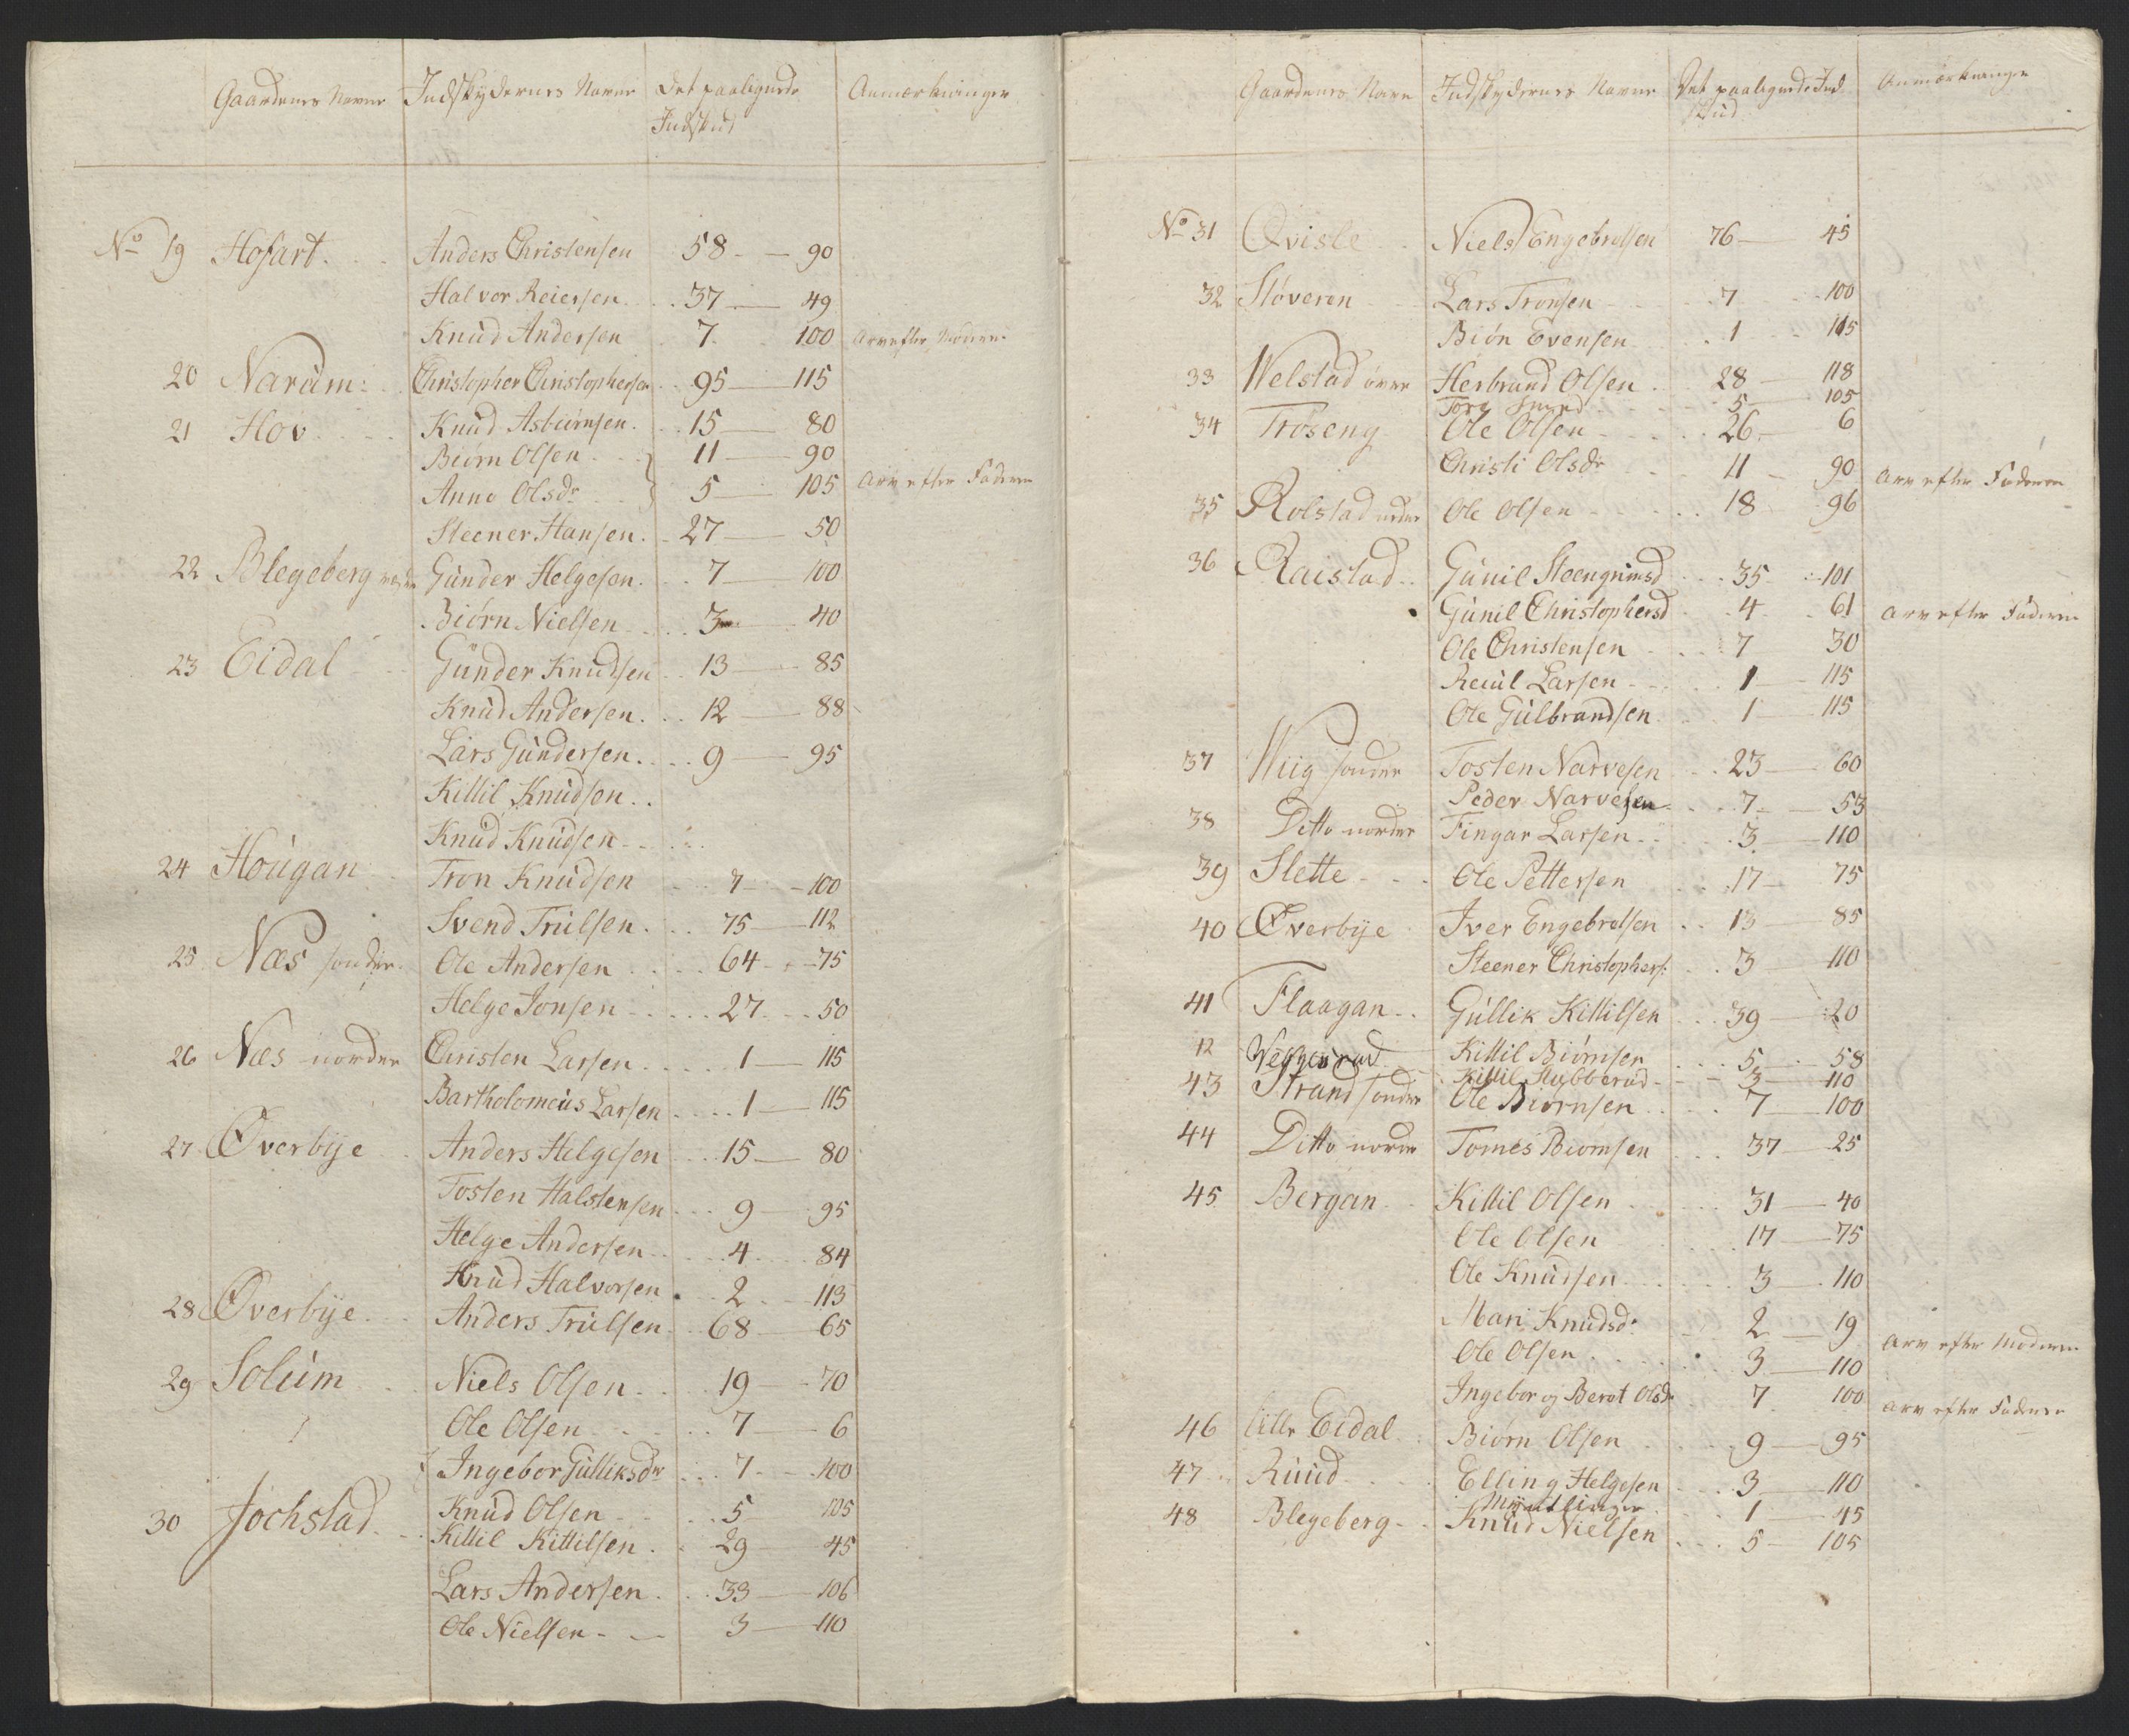 Gaardenes Navne Indskydernes Navne Det paalignede Indskud Anmærkninger
No 19 Hofart Anders Christensen 58 - 90
Halvor Reiersen 37 - 49
Knud Andersen 7 100 Arv efter Moderen
20 Narum Christopher Christophersen 95 - 115
21 Hov Knud Asbiørnsen 15 - 80
Biørn Olsen 11 - 90
Anne Olsdr 5 - 105 Arv efter Faderen
Steener Hansen 27 - 50
22 Blegeberg Gunder Helgesen 7 - 100
Biørn Nielsen 3 - 40
23 Eidal Gunder Knudsen 13 - 85
Knud Andersen 12 - 88
Lars Gundersen 9 - 95
Killil Knudsen
Knud Knudsen
24 Hougan Tron Knudsen 7 - 100
Svend Trulsen 75 - 112
25 Næs sondre Ole Andersen 64 - 75
Helge Jonsen 27 - 50
26 Næs nordre Christen Larsen 1 - 115
Bartholomeus Larsen 1 - 115
27 Øverbye Anders Helgesen 15 - 80
Tosten Halstensen 9 - 95
Helge Andersen 4 84
Knud Halvorsen 2 - 113
28 Øverbye Anders Trulsen 68 - 65
29 Solum Niels Olsen 19 - 70
Ole Olsen 7 - 6
Ingebor Gulliksdr 7 - 100
30 Jochstad Knud Olsen 5 105
Kittil Kittilsen 29 - 45
Lars Andersen 33 - 106
Ole Nielsen 3 - 110
Gaardenes Navn Indskydernes Navne Det paalignede Indskud Anmærkninger
No 31 Qvisle Niels Engebretsen 76 - 45
32 Støveren Lars Tronsen 7 - 100
Biøn Evensen 1 - 115
33 Welstad øvre Herbrand Olsen 28 - 118
Tore 5 - 105
34 Trøseng Ole Olsen 26 - 6
Christi Olsdr 11 - 90 Arv efter Faderen
35 Rolstad Ole Olsen 18 96
36 Raistad Gunil Steengrimsd 35 - 101
Gunil Christophersd 4 61 Arv efter Faderen
Ole Christensen 7 30
Reiul Larsen 1 - 115
Ole Gulbrandsen 1 - 115
37 Wiig sondre Tosten Narvesen 23 - 60
Peder Narvesen 7 - 53
38 Ditto nordre Fingar Larsen 3 - 110
39 Slette Ole Pettersen 17 - 75
40 Øverbye Iver Engebretsen 13 - 85
Steener Christophers: 3 - 110
41 Flaagan Gullik Kittilsen 39 - 20
12 Kittil Biørnsen 5 - 58
Kittil Stubberud 3 - 110
43 Strand sondre Ole Biørnsen 7 - 100
44 Ditto nordre Tomes Biørnsen 37 - 25
45 Bergan Kittil Olsen 31 - 40
Ole Olsen 17 - 75
Ole Knudsen 3 - 110
Mari Knudsdr 2 - 19
Ole Olsen 3 - 110 Arv efter Moderen
Ingebor og Beret Olsdr 7 100 Arv efter Faderen
46 lille Eidal Biørn Olsen 9 - 95
47 Ruud Elling Helgesen 3 - 110
Myntlinger 1 - 45
48 Blegeberg Knud Nielsen 5 - 105